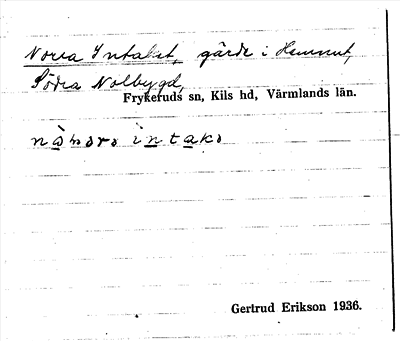 Norra Intaket, gärde i Hemmet,
Södra Nolbygd,
Frykeruds sn, Kils hd, Värmlands län.
intako
Gertrud Erikson 1936.